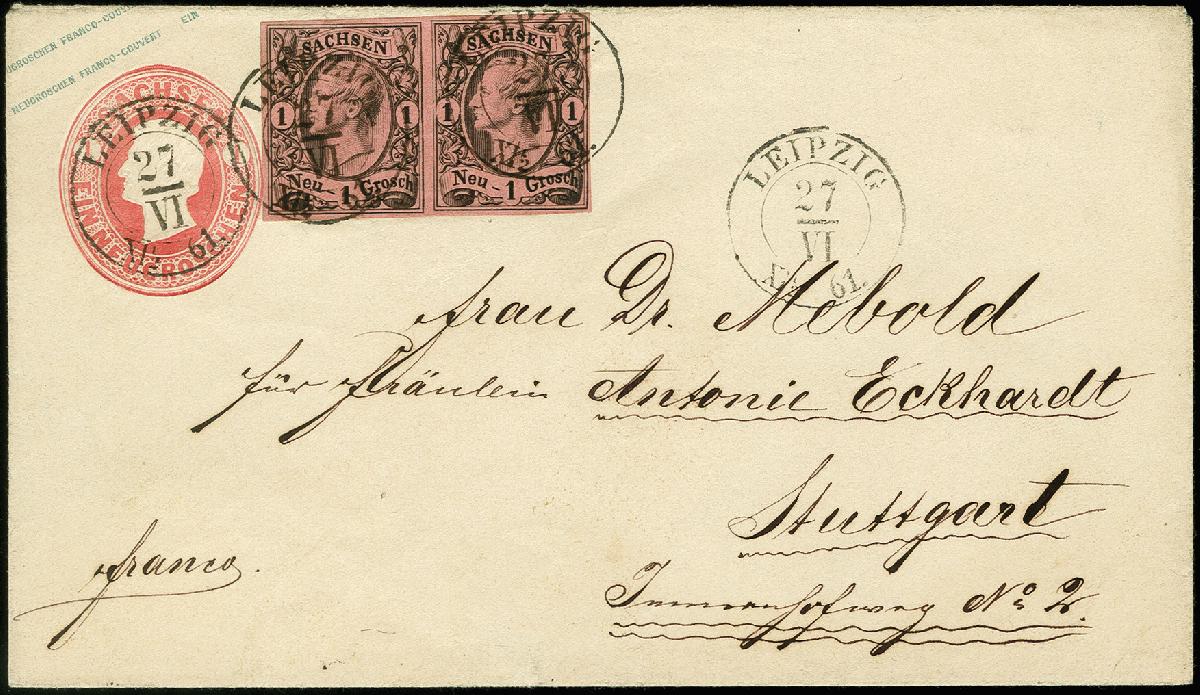 UGROSCHEN FRANCO-COUV
EIN
NEUGROSCHEN FRANCO-COUVERT
SACHSEN
EIN NEUGROSCHEN
LEIPZIG
27
VI
61.
SACHSEN
1 1
Neu - 1 Grosch
LEIPZIG
27
VI
SACHSEN
1 1
Neu - 1 Grosch
LEIPZIG
27
VI
XI5 61.
LEIPZIG
27
VI
61.
Frau Dr. Mebold
für Fräulein Antonie Eckhardt
Stuttgart
franco.
Immenhofweg No 2.